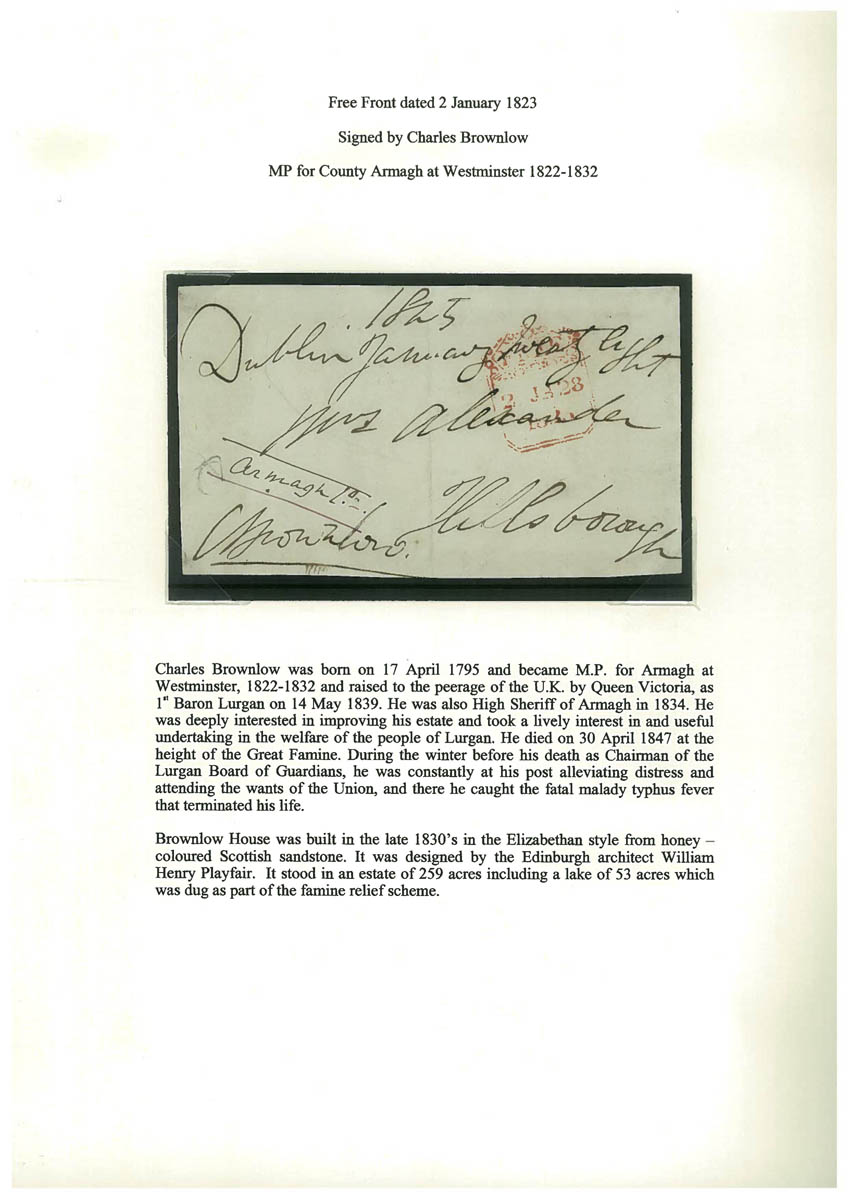 Free Front dated 2 January 1823
Signed by Charles Brownlow
MP for County Armagh at Westminster 1822-1832
1825
Dublin January twenty eight
2 JA 28
Mrs Alexander
Armagh
Hillsborough
CBrownlow.
Charles Brownlow was born on 17 April 1795 and became M.P. for Armagh at
Westminster, 1822-1832 and raised to the peerage of the U.K. by Queen Victoria, as
1st Baron Lurgan on 14 May 1839. He was also High Sheriff of Armagh in 1834. He
was deeply interested in improving his estate and took a lively interest in and useful
undertaking in the welfare of the people of Lurgan. He died on 30 April 1847 at the
height of the Great Famine. During the winter before his death as Chairman of the
Lurgan Board of Guardians, he was constantly at his post alleviating distress and
attending the wants of the Union, and there he caught the fatal malady typhus fever
that terminated his life.
Brownlow House was built in the late 1830's in the Elizabethan style from honey –
coloured Scottish sandstone. It was designed by the Edinburgh architect William
Henry Playfair. It stood in an estate of 259 acres including a lake of 53 acres which
was dug as part of the famine relief scheme.